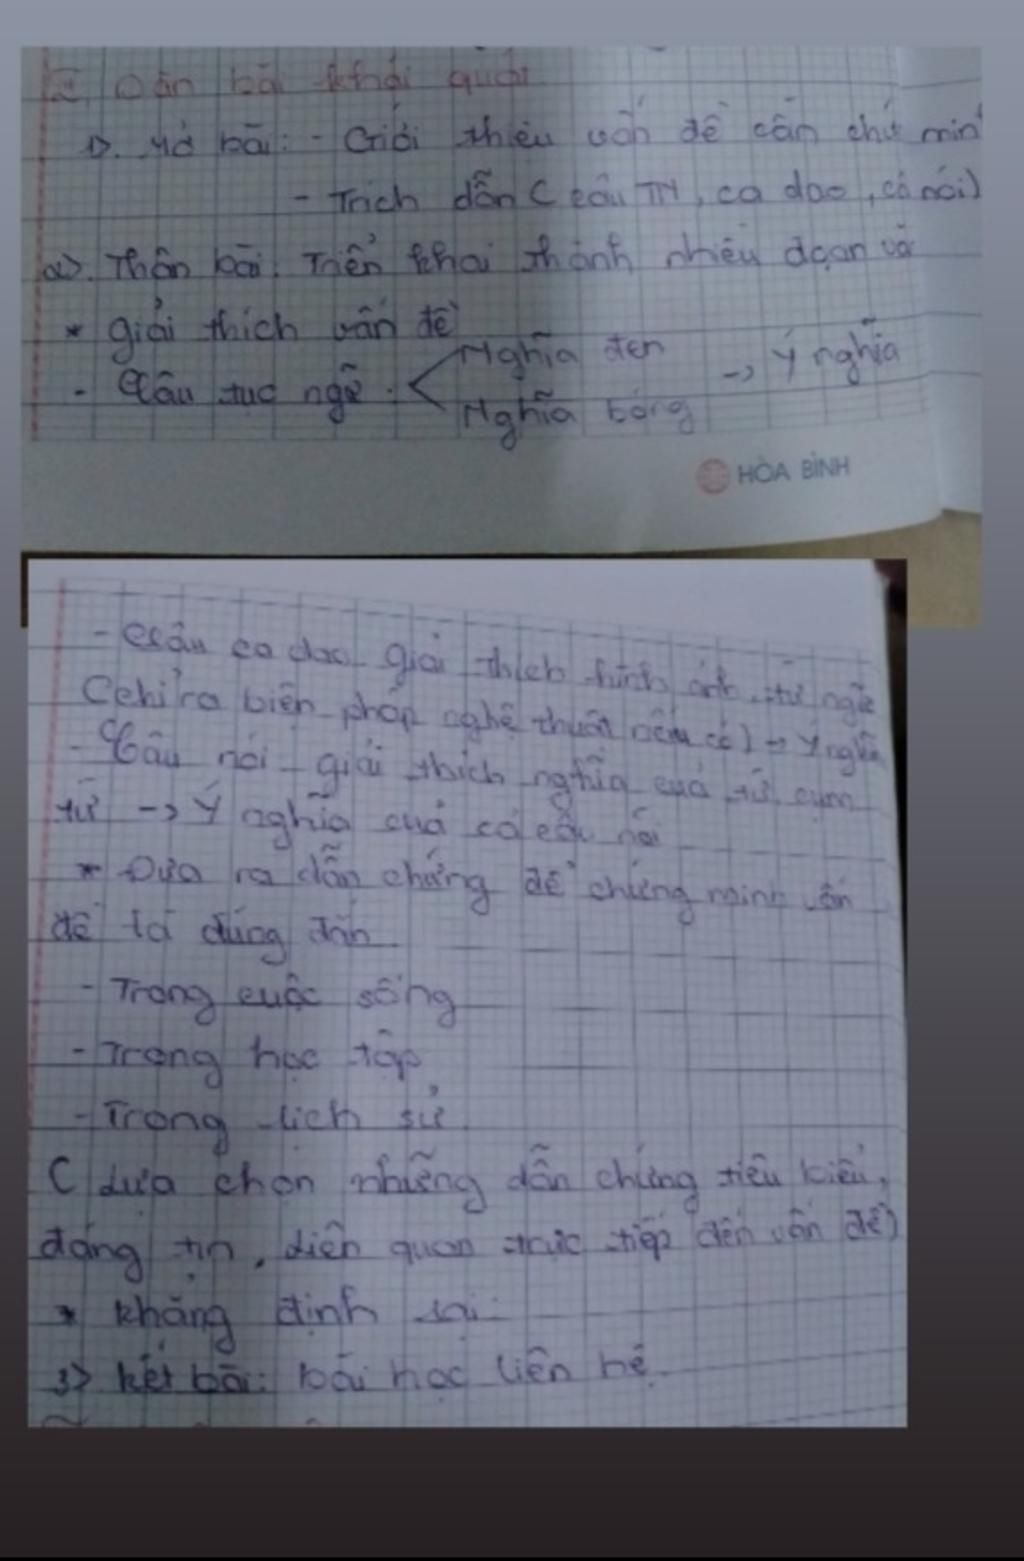 2, Dàn bài khái quát
1). Mở bài: - Giới thiệu vấn đề cần chứ min
- Trích dẫn ( câu TN, ca dao, câ nói)
2). Thân bài. Triển khai thành nhiều đoạn vă
* giải thích vấn đề
- Câu tục ngữ: Nghĩa đen
Nghĩa bóng
-> Ý nghĩa
HÒA BÌNH
- Câu ca dao giải thích hình ảnh, từ ngữ
(chỉ ra biện pháp nghệ thuật nếu có) -> Ý nghĩa
- Câu nói giải thích nghĩa của từ, cụm
từ -> Ý nghĩa của cả câu nói
* Đưa ra dẫn chứng để chứng minh vấn
đề là đúng đắn
- Trong cuộc sống
- Trong học tập
- Trong lịch sử
( lựa chọn những dẫn chứng tiêu biểu,
đáng tin, liên quan trực tiếp đến vấn đề)
* khẳng định lại
3) kết bài: bài học liên hệ.